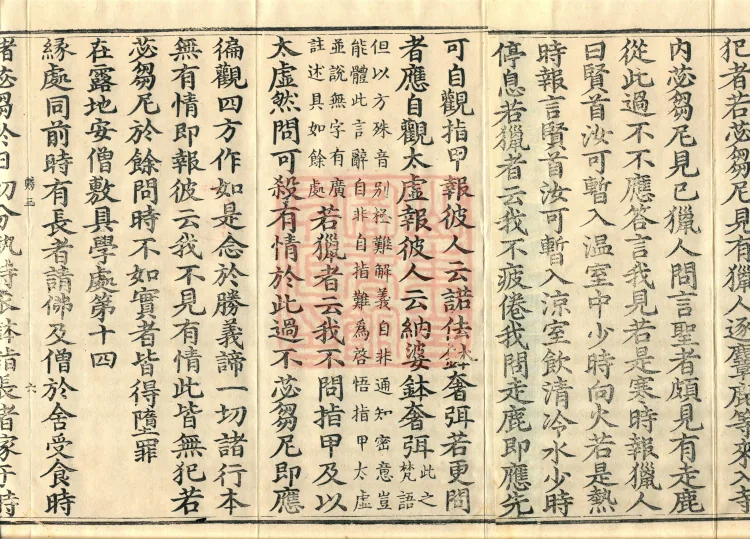 犯者若苾芻尼見有獵人逐麞鹿等來入寺
内苾芻尼見已獵人問言聖者頗見有走鹿
從此過不不應答言我見若是寒時報獵人
曰賢首汝可暫入温室中少時向火若是熱
時報言賢首汝可暫入涼室飲清冷水少時
停息若獵者云我不疲倦我問走鹿即應先
可自觀指甲報彼人云諾佉奢弭若更問
者應自觀太虚報彼人云納婆鉢奢弭梵語此之
但以方殊音别極難解義自非通知密意豈
能體此言辭自非自指難為啓悟指甲太虚
並説無字有廣
註述具如餘處若獵者云我不問指甲及以
太虚然問可殺有情於此過不苾芻尼即應
徧觀四方作如是念於勝義諦一切諸行本
無有情即報彼云我不見有情此皆無犯若
苾芻尼於餘問時不如實者皆得墮罪
在露地安僧敷具學處第十四
緣處同前時有長者請佛及僧於舍受食時
六
諸苾芻於日初分執持衣鉢詣長者家于時